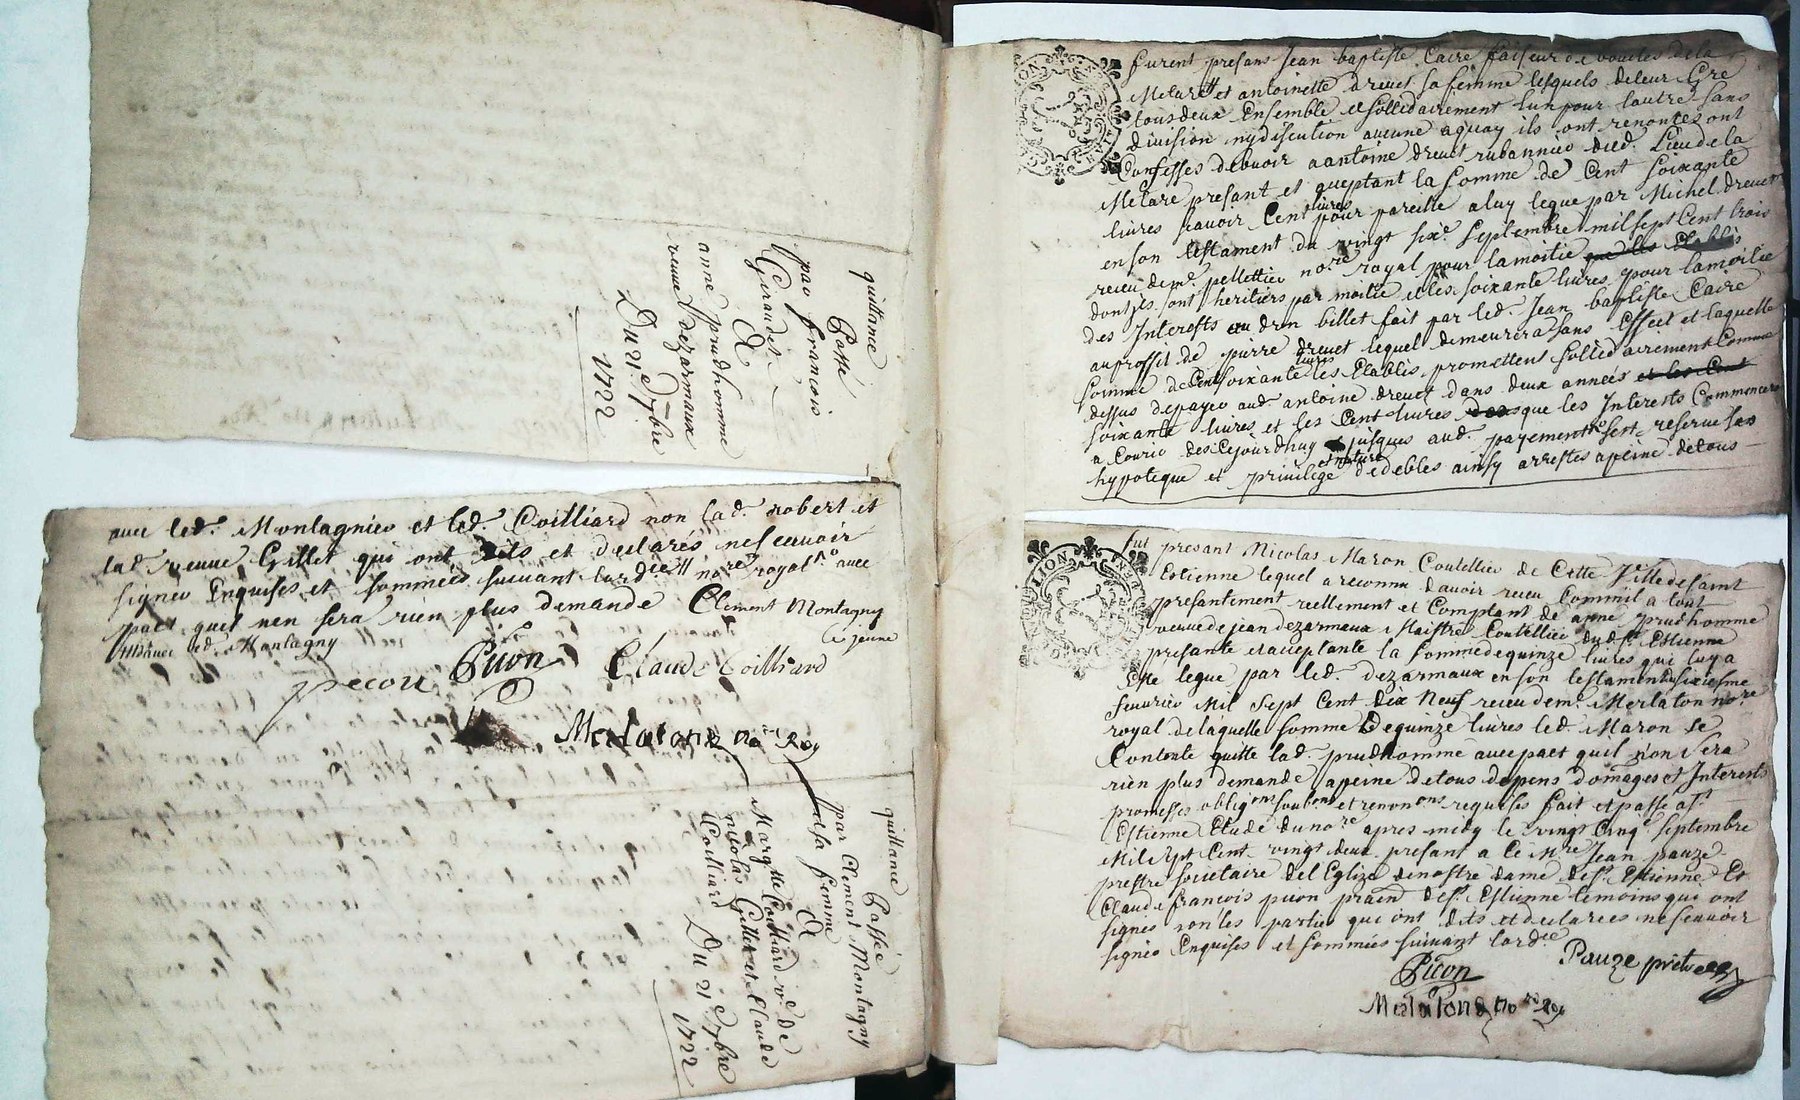 quittance
Passé
par francois
Giraudet
&
anne prudhomme
veuve dezarmaux
Du 21e 7bre
1722
avec led. Montagnier et led. Coilliard non lad. robert et
lad. veuve Gillet qui ont dits et declarés ne scauoir
signer Enquises et sommées suiuant lordce nore royal avec
pact quil nen sera rien plus demande Clement Montagny
led. Montagny le jeune
Picon Claude Coilliard
picon
Merlaton no re Roy
quittance
Passée
par Clement Montagny
et sa femme
&
Margtte Coilliard ve de
nicolas Gillet et Claude
Coilliard
Du 21e 7bre
1722
furent presans Jean baptiste Caire faiseur de boucles de la
Metare et antoinette dreuet sa femme lesquels de leur Gre
tous deux Ensemble et sollidairement lun pour lautre sans
diuision ny discution aucune aquoy ils ont renontés ont
Confesses debuoir a antoine dreuet rubannier dud. Lieu de la
Metare presant et aceptant la somme de Cent soixante
liures scauoir Cent liures pour pareille a luy legue par Michel dreuet
en son testament du vingt sixe. septembre mil sept Cent trois
receu de me. pellettier nore royal pour la moitie que les Etablis
dont ils sont heritiers par moitie et les soixante liures pour la moitie
des Interests dun billet fait par led. Jean baptiste Caire
au proffit de pierre dreuet lequel demeurera sans Effect et laquelle
somme de Cent soixante liures les Etablis promettent sollidairement Comme
dessus de payer aud. antoine dreuet dans deux années et les Cent
soixante liures et les Cent liures que les Interests Commencera
a Courir des Ce jourdhuy jusques aud. payement sest reserue ses
hypoteque et priuilege et nature de debtes ainsy arrestes a peine de tous
fut presant Nicolas Maron Coutellier de Cette Ville de saint
Estienne lequel a reconnu dauoir receu Comme il a tout
presantement reellement et Comptant de anne prudhomme
veuue de jean dezarmaux Maistre Coutellier dud. st. Estienne
presante et acceptante la somme de quinze liures qui luy a
Este legue par led. dezarmaux en son testament du sixiesme
feurier Mil sept Cent dix Neuf receu de me. Merlaton nore.
royal de laquelle somme de quinze liures led. Maron se
Contente quitte lad. prudhomme auec pact quil nen sera
rien plus demande a peine de tous depens domages et Interests
promesses obligons soubons et renonons requises fait et passé a st.
Estienne Etude du nore apres midy le vingt Cinqe septembre
Mil sept Cent vingt deux presant a Ce Mre Jean pauze
prestre societaire de lEglize de nostre dame de st. Estienne Et
Claude francois picon pratn de st. Estienne temoins qui ont
signes non les parties qui ont dits et declarees ne scauoir
signer Enquises et sommées suiuant lordce
Picon Pauze prêtre
Merlaton no re Roy